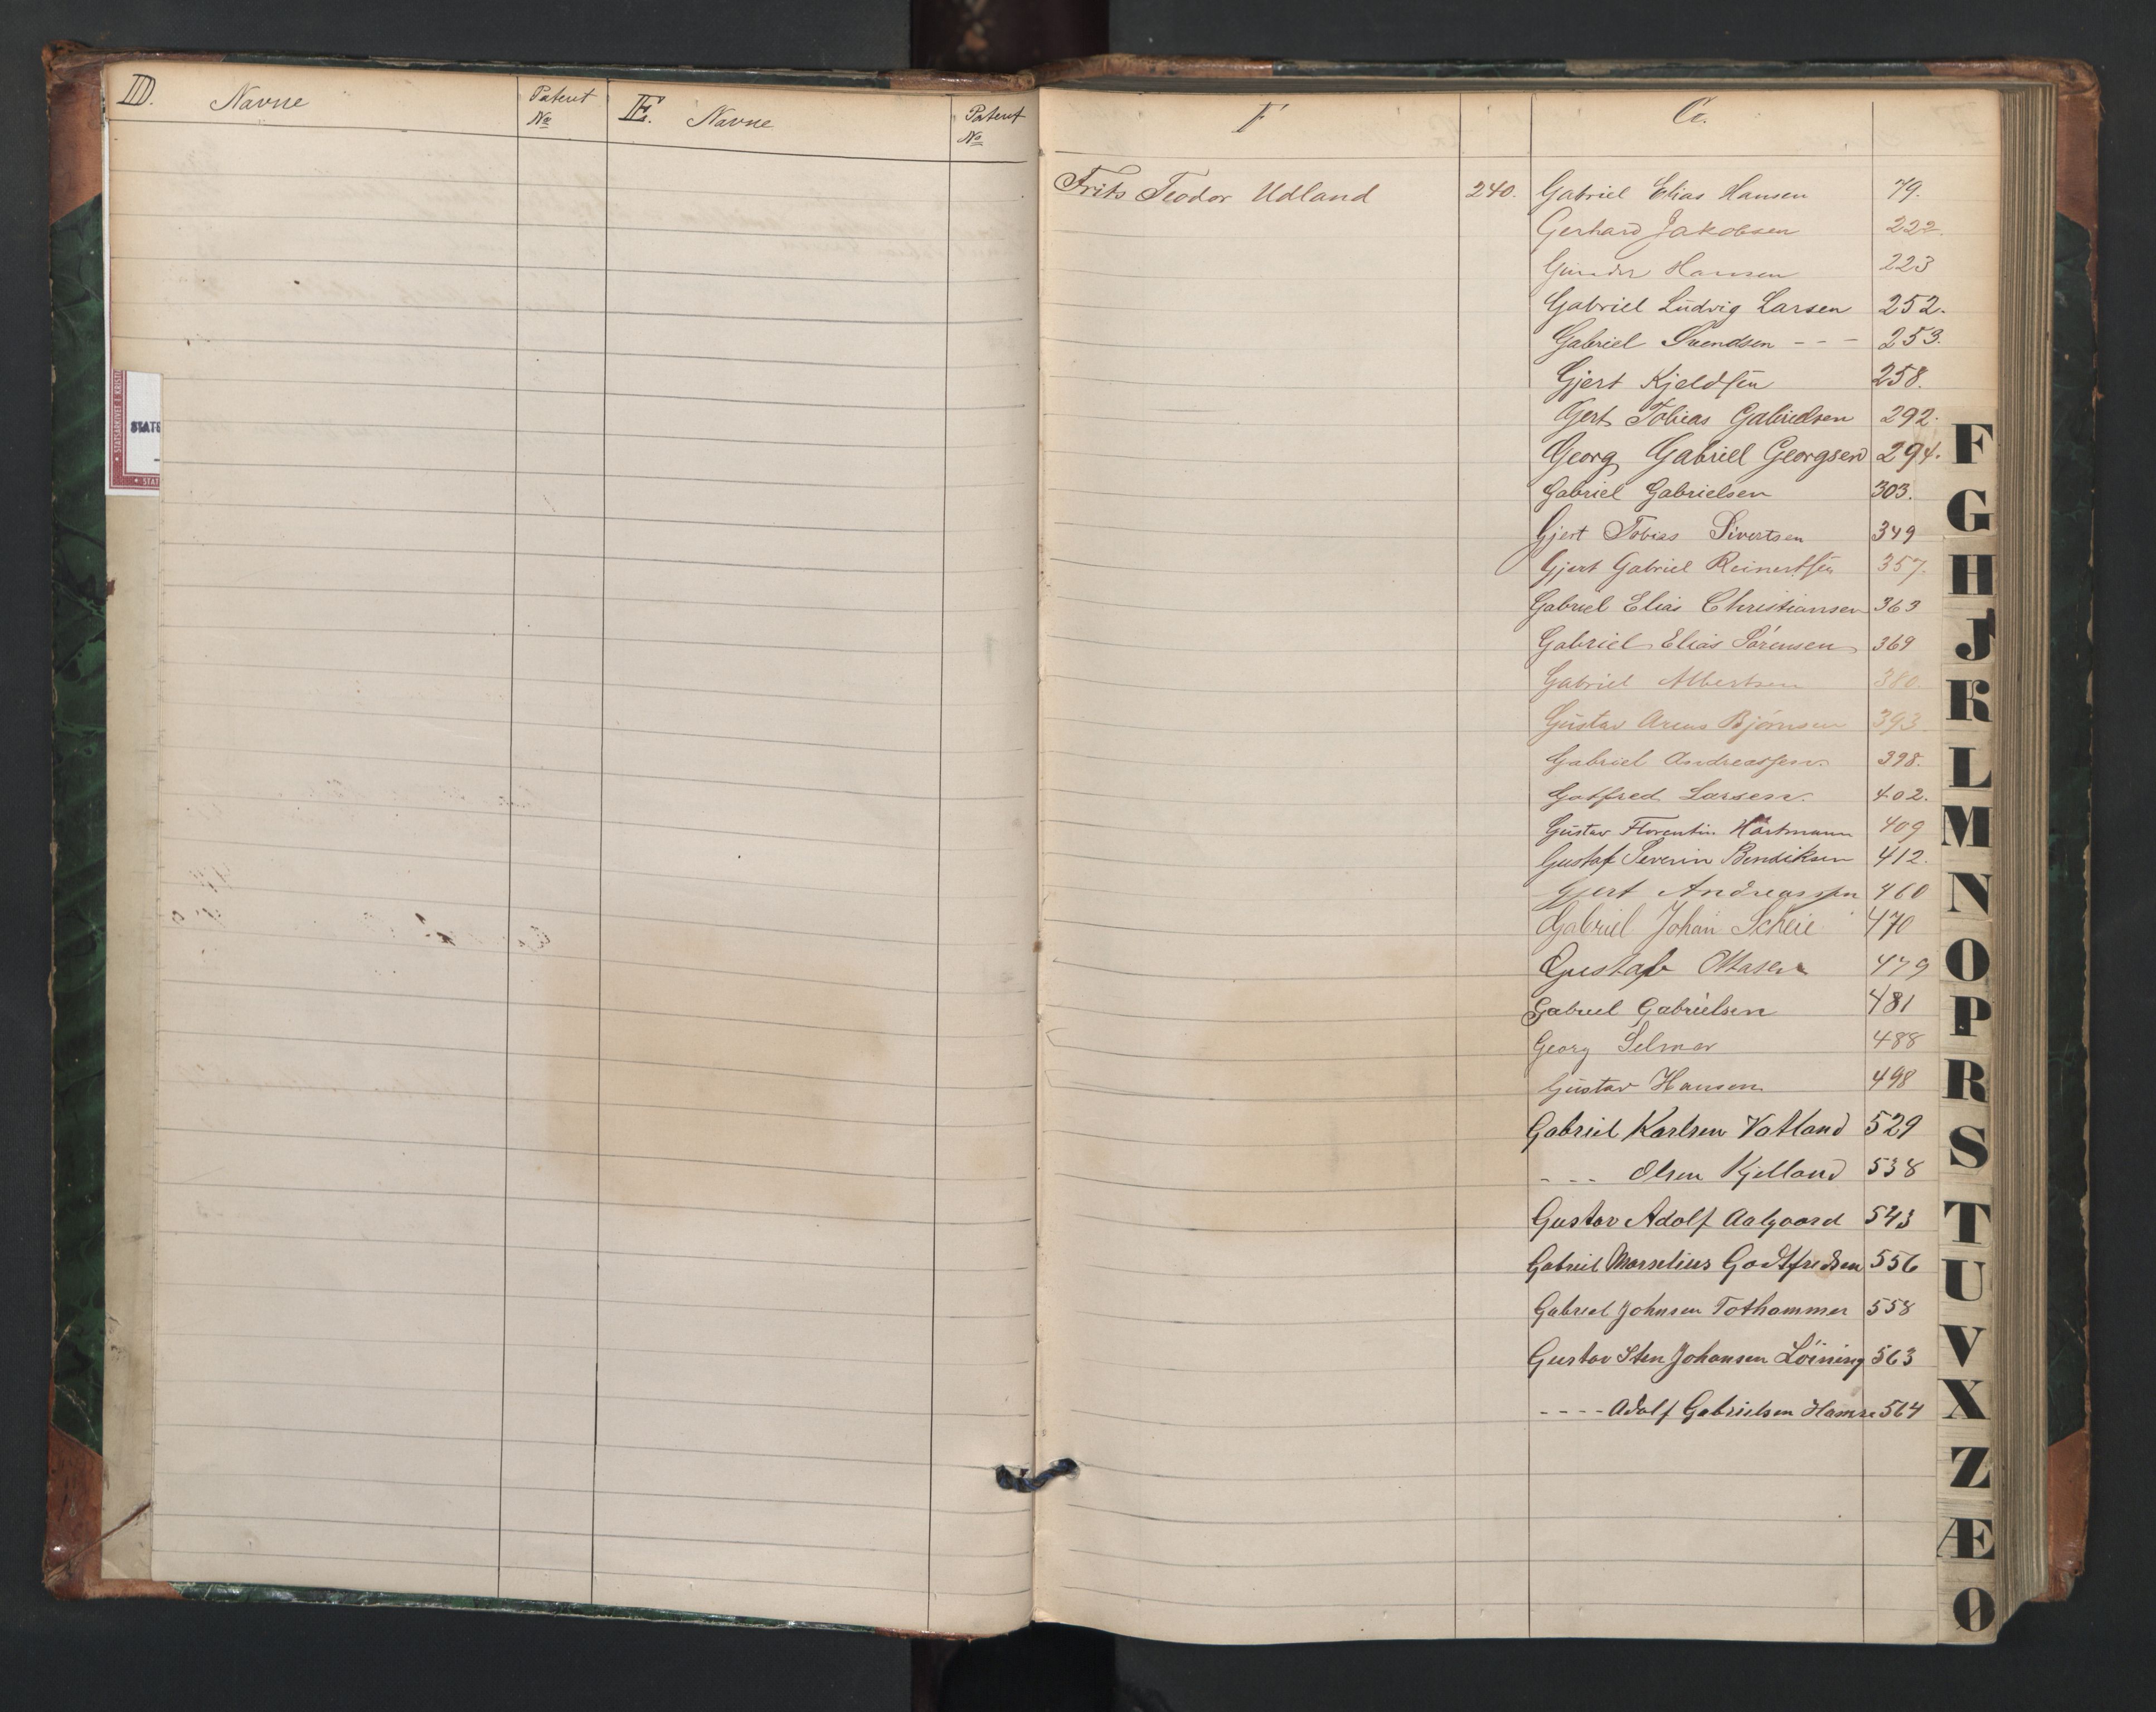 D. Navne
Patent
No
E. Navne
Patent
No
F
G.
Frits Teodor Udland 240.
Gabriel Elias Hansen 79.
Gerhard Jakobsen 222.
Gunder Hansen 223
Gabriel Ludvig Larsen 252.
Gabriel Svendsen - - - 253.
Gjert Kjeldsen 258.
Gjert Tobias Gabrielsen 292.
Georg Gabriel Georgsen 294.
Gabriel Gabrielsen 303.
Gjert Tobias Sivertsen 349
Gjert Gabriel Reinertsen 357.
Gabriel Elias Christiansen 363
Gabriel Elias Sörensen 369
Gabriel Albertsen 380.
Gustav Bjørnsen 393
Gabriel Andreassen. 398.
Gotfred Larsen. 402.
Gustav Florentin Hartmann 409
Gustaf Severin Bendiksen 412.
Gjert Andreassen 460
Gabriel Johan Scheie 470
Gustaf Ottasen 479
Gabriel Gabrielsen 481
Georg Selmer 488
Gustav Hansen 498
Gabriel Karlsen Vatland 529
- - - Olsen Kjelland 538
Gustav Adolf Aalgaard 543
Gabriel Marselius Godtfredsen 556
Gabriel Johnsen Tothammer 558
Gustav Sten Johansen Löining 563
- - - - Adolf Gabrielsen Hamre 564
STATSARKIVET I KRISTI
STATS
STAT
F
G
H
J
K
L
M
N
O
P
R
S
T
U
V
X
Z
Æ
Ø